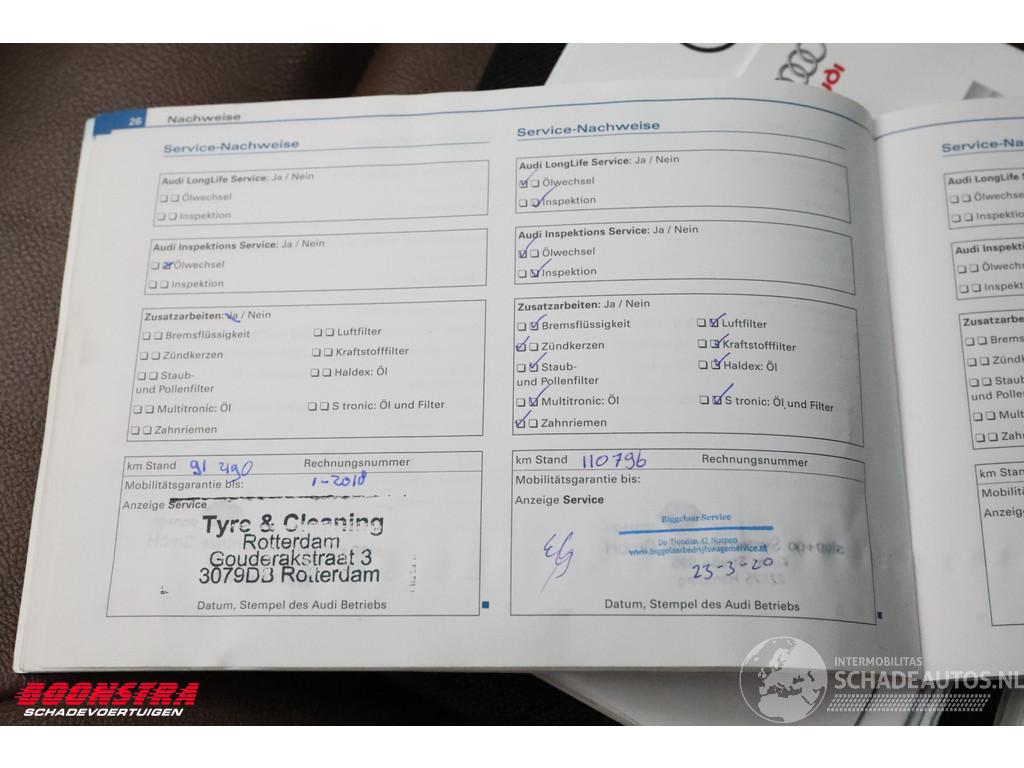 Audi
26 Nachweise
Service-Nachweise
Audi LongLife Service: Ja / Nein
Ölwechsel
Inspektion
Audi Inspektions Service: Ja / Nein
Ölwechsel
Inspektion
Zusatzarbeiten: Ja / Nein
Bremsflüssigkeit
Luftfilter
Zündkerzen
Kraftstofffilter
Staub-
und Pollenfilter
Haldex: Öl
Multitronic: Öl
S tronic: Öl und Filter
Zahnriemen
km Stand 91 490 Rechnungsnummer
Mobilitätsgarantie bis: 1-2018
Anzeige Service
Tyre & Cleaning
Rotterdam
Gouderakstraat 3
3079DB Rotterdam
Datum, Stempel des Audi Betriebs
Service-Nachweise
Audi LongLife Service: Ja / Nein
Ölwechsel
Inspektion
Audi Inspektions Service: Ja / Nein
Ölwechsel
Inspektion
Zusatzarbeiten: Ja / Nein
Bremsflüssigkeit
Luftfilter
Zündkerzen
Kraftstofffilter
Staub-
und Pollenfilter
Haldex: Öl
Multitronic: Öl
S tronic: Öl und Filter
Zahnriemen
km Stand 110796 Rechnungsnummer
Mobilitätsgarantie bis:
Anzeige Service
Biggelaar Service
De Tienden 42 Nuenen
www.biggelaarbedrijfswagenservice.nl
23-3-20
Datum, Stempel des Audi Betriebs
Service-Na
Audi LongLife S
Ölwechse
Inspektio
Audi Inspekti
Ölwechs
Inspekt
Zusatzarbei
Brems
Zünd
Staub
und Polle
Mult
Zah
km Stan
Mobilit
Anzeig
BOONSTRA
SCHADEVOERTUIGEN
INTERMOBILITAS
SCHADEAUTOS.NL